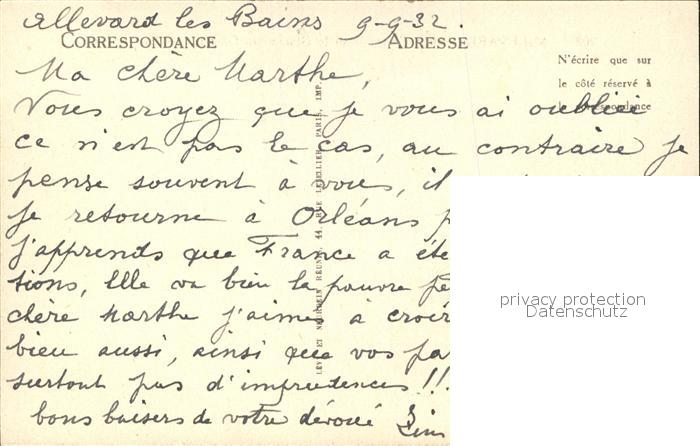 Allevard les Bains 9-9-32.
CORRESPONDANCE ADRESSE
N'écrire que sur
le côté réservé à
la correspondance
Ma chère Marthe,
Vous croyez que je vous ai oubliée
ce n'est pas le cas, au contraire je
pense souvent à vous, il
je retourne à Orléans p
j'apprends que France a été
tions, Elle va bien la pauvre pe
chère Marthe j'aimes à croir
bien aussi, ainsi que vos pa
surtout pas d'imprudences!!.
bons baisers de votre dévoué
LÉVY ET NEURDEIN RÉUNIS, 44, RUE LETELLIER, PARIS, IMP.
privacy protection
Datenschutz